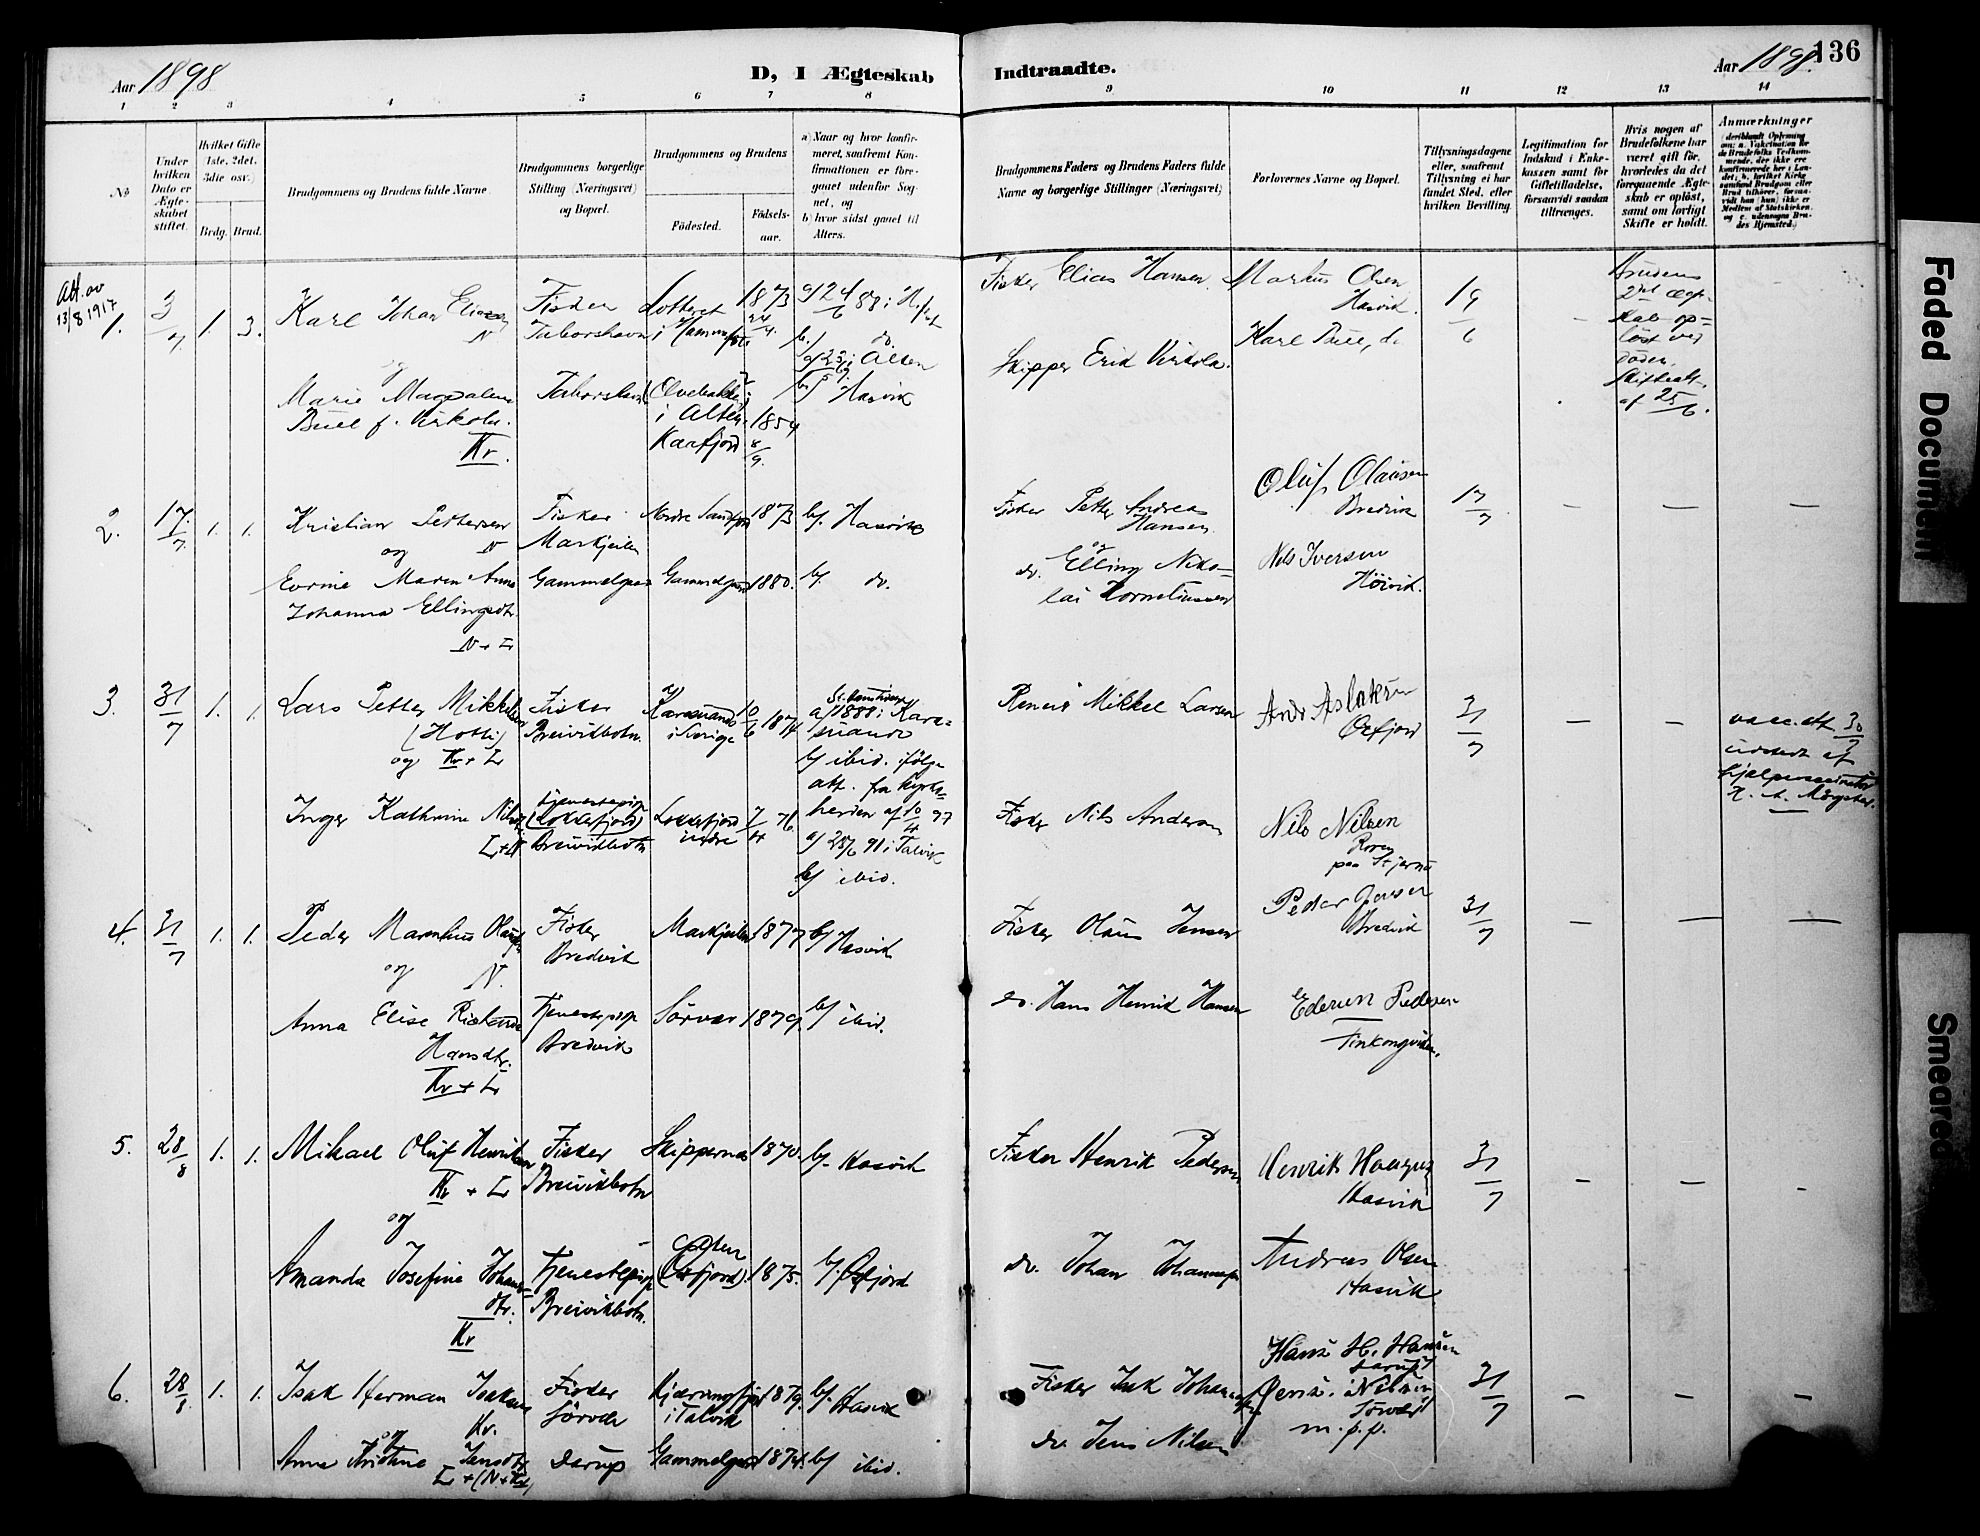 Aar 1898
D, I Ægteskab
Indtraadte.
Aar 1898.
136
1 2 3 4 5 6 7 8 9 10 11 12 13 14
No
Under hvilken Dato er Ægteskabet stiftet.
Hvilket Gifte 1ste, 2det, 3die osv.)
Brdg.
Brud.
Brudgommens og Brudens fulde Navne.
Brudgommens borgerlige Stilling (Næringsvei) og Bopæl.
Brudgommens og Brudens
Fødested.
Fødselsaar.
a) Naar og hvor konfirmeret, saafremt Konfirmationen er foregaaet udenfor Sognet, og
b) hvor sidst gaaet til Alters.
Brudgommens Faders og Brudens Faders fulde Navne og borgerlige Stillinger (Næringsvei)
Forlovernes Navne og Bopæl.
Tillysningsdagene eller, saafremt Tillysning ei har fundet Sted, efter hvilken Bevilling.
Legitimation for Indskud i Enkekassen samt for Giftetilladelse, forsaavidt saadan tiltrænges.
Hvis nogen af Brudefolkene har været gift før, hvorledes da det foregaaende Ægteskab er opløst, samt om lovligt Skifte er holdt.
Anmærkninger
Att. av
13/8 1917
1.
3/7
1.
3.
Karl Johan Eliassen
N
og
Marie Magdalena
Buel f. Virkola.
Kr.
Fisker
Taborshavn
Taborshavn
i Hammerfest
i Alten
Kaafjord
1873
1854
8/9.
b)
do
a) 23/9 i Alten
b) Hasvik
Fisker Elias Hansen
Skipper Erik Virkola.
Markus Olsen
Hasvik.
Karl Buel, do
19/6
Brudens
2det ægteskab opløst ved
døden.
Skifteatt.
af 25/6.
2.
17/7.
1.
1.
Kristian Pettersen
og N
Evrine Maren Anna
Johanna Ellingsdtr.
N + L
Fisker
Markjeilen
Gammelgaar
Nordre Sandfjord
Gammelgaard
1873
1880.
b). Hasvik
b). do.
Fisker Petter Andreas
Hansen
og
do. Elling Nikolai Korneliussen
Oluf Olausen
Bredvik
Nils Iversen
Hönvik.
17/7
3.
31/7
1.
1.
Lars Petter Mikkelsen
(Hotti)
og Kr + L
Inger Kathrine Nilsdtr
Fisker
Breivikbotn.
tjenestepige
(Lokkefjord)
Breivikbotn
Karesuando
i Sverige
Lokkefjord
indre
10/6 1874
7/4 76.
a) 1888 i Karesuando
b) ibid. ifølge
att. fra kyrkoherden af 10/4 97
a) 28/6 91 i Talvik
b) ibid.
Mikkel Larsen
Fisker Nils Andersen
Andr Aslaksen
Oxfjord
Nils Nilsen
paa Stjernø
31/7
vacc. att. 30/7
udstedt af
hjælpevaccinatör
4.
31/7
1.
1.
Peder Marenhius Olausen
og N.
Anna Elise Rikarda
Hansdtr.
Kr + L
Fisker
Bredvik
Tjenestepige
Bredvik
Markjeilen
Sörvær
1877
1879.
b) Hasvik
b) ibid.
Fisker Olaus Jensen
do. Hans Henrik Hansen
Peder Jensen
Bredvik
Pedersen
Finkongviken.
31/7
5.
28/8
1.
1.
Mikael Oluf Henriksen
Kr + L
og
Amanda Josefine Johansdtr.
Kr
Fisker
Breivikbotn
Tjenestepige
Breivikbotn.
Skippernæs
(Oxfjord)
1870.
1875.
b). Hasvik
b). Oxfjord
Fisker Henrik Pedersen
do. Johan Johannesen
Henrik Haagensen
Hasvik
Andreas Olsen
Hasvik
31/7
6.
28/8.
1.
1.
Isak Herman Isaksen
Kr.
og
Anna Kristine Jensdtr
L + (N + Kr)
Fisker
Sörvær
Darup
Kjærringfjord
i Talvik
Gammelgaard
1879.
1874.
b). Hasvik
b) ibid.
Fisker Isak Johannesen
do. Jens Nilsen
Hans H. Hansen
Darup
Jens Nilsen
Sörvær
m. p. p.
31/7
Faded Document
Smeared